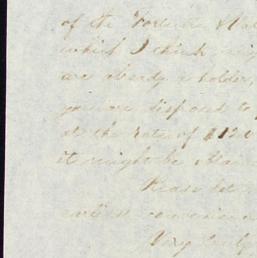 of the
which I think
are already a holder,
you are disposed to
at the rate of $120
it might be
Please let
earliest convenience
Very truly